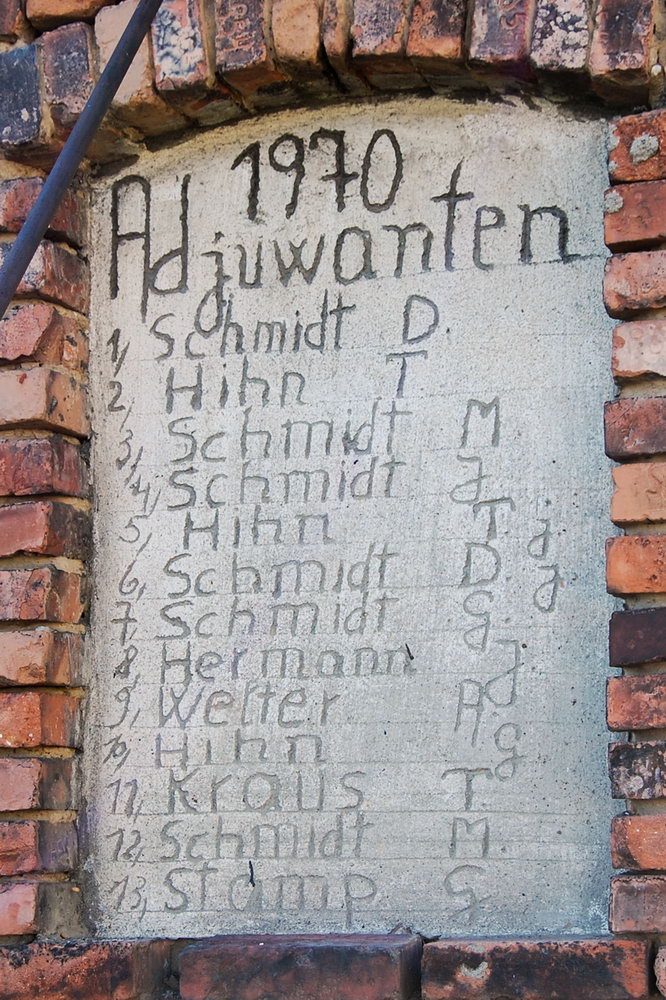 1970
Adjuwanten
1, Schmidt D.
2, Hihn T
3, Schmidt M
4, Schmidt J
5, Hihn T. j
6, Schmidt D. j
7, Schmidt G.
8, Hermann J
9, Welter A.
10, Hihn G
11, Kraus T
12, Schmidt M
13, Stamp G